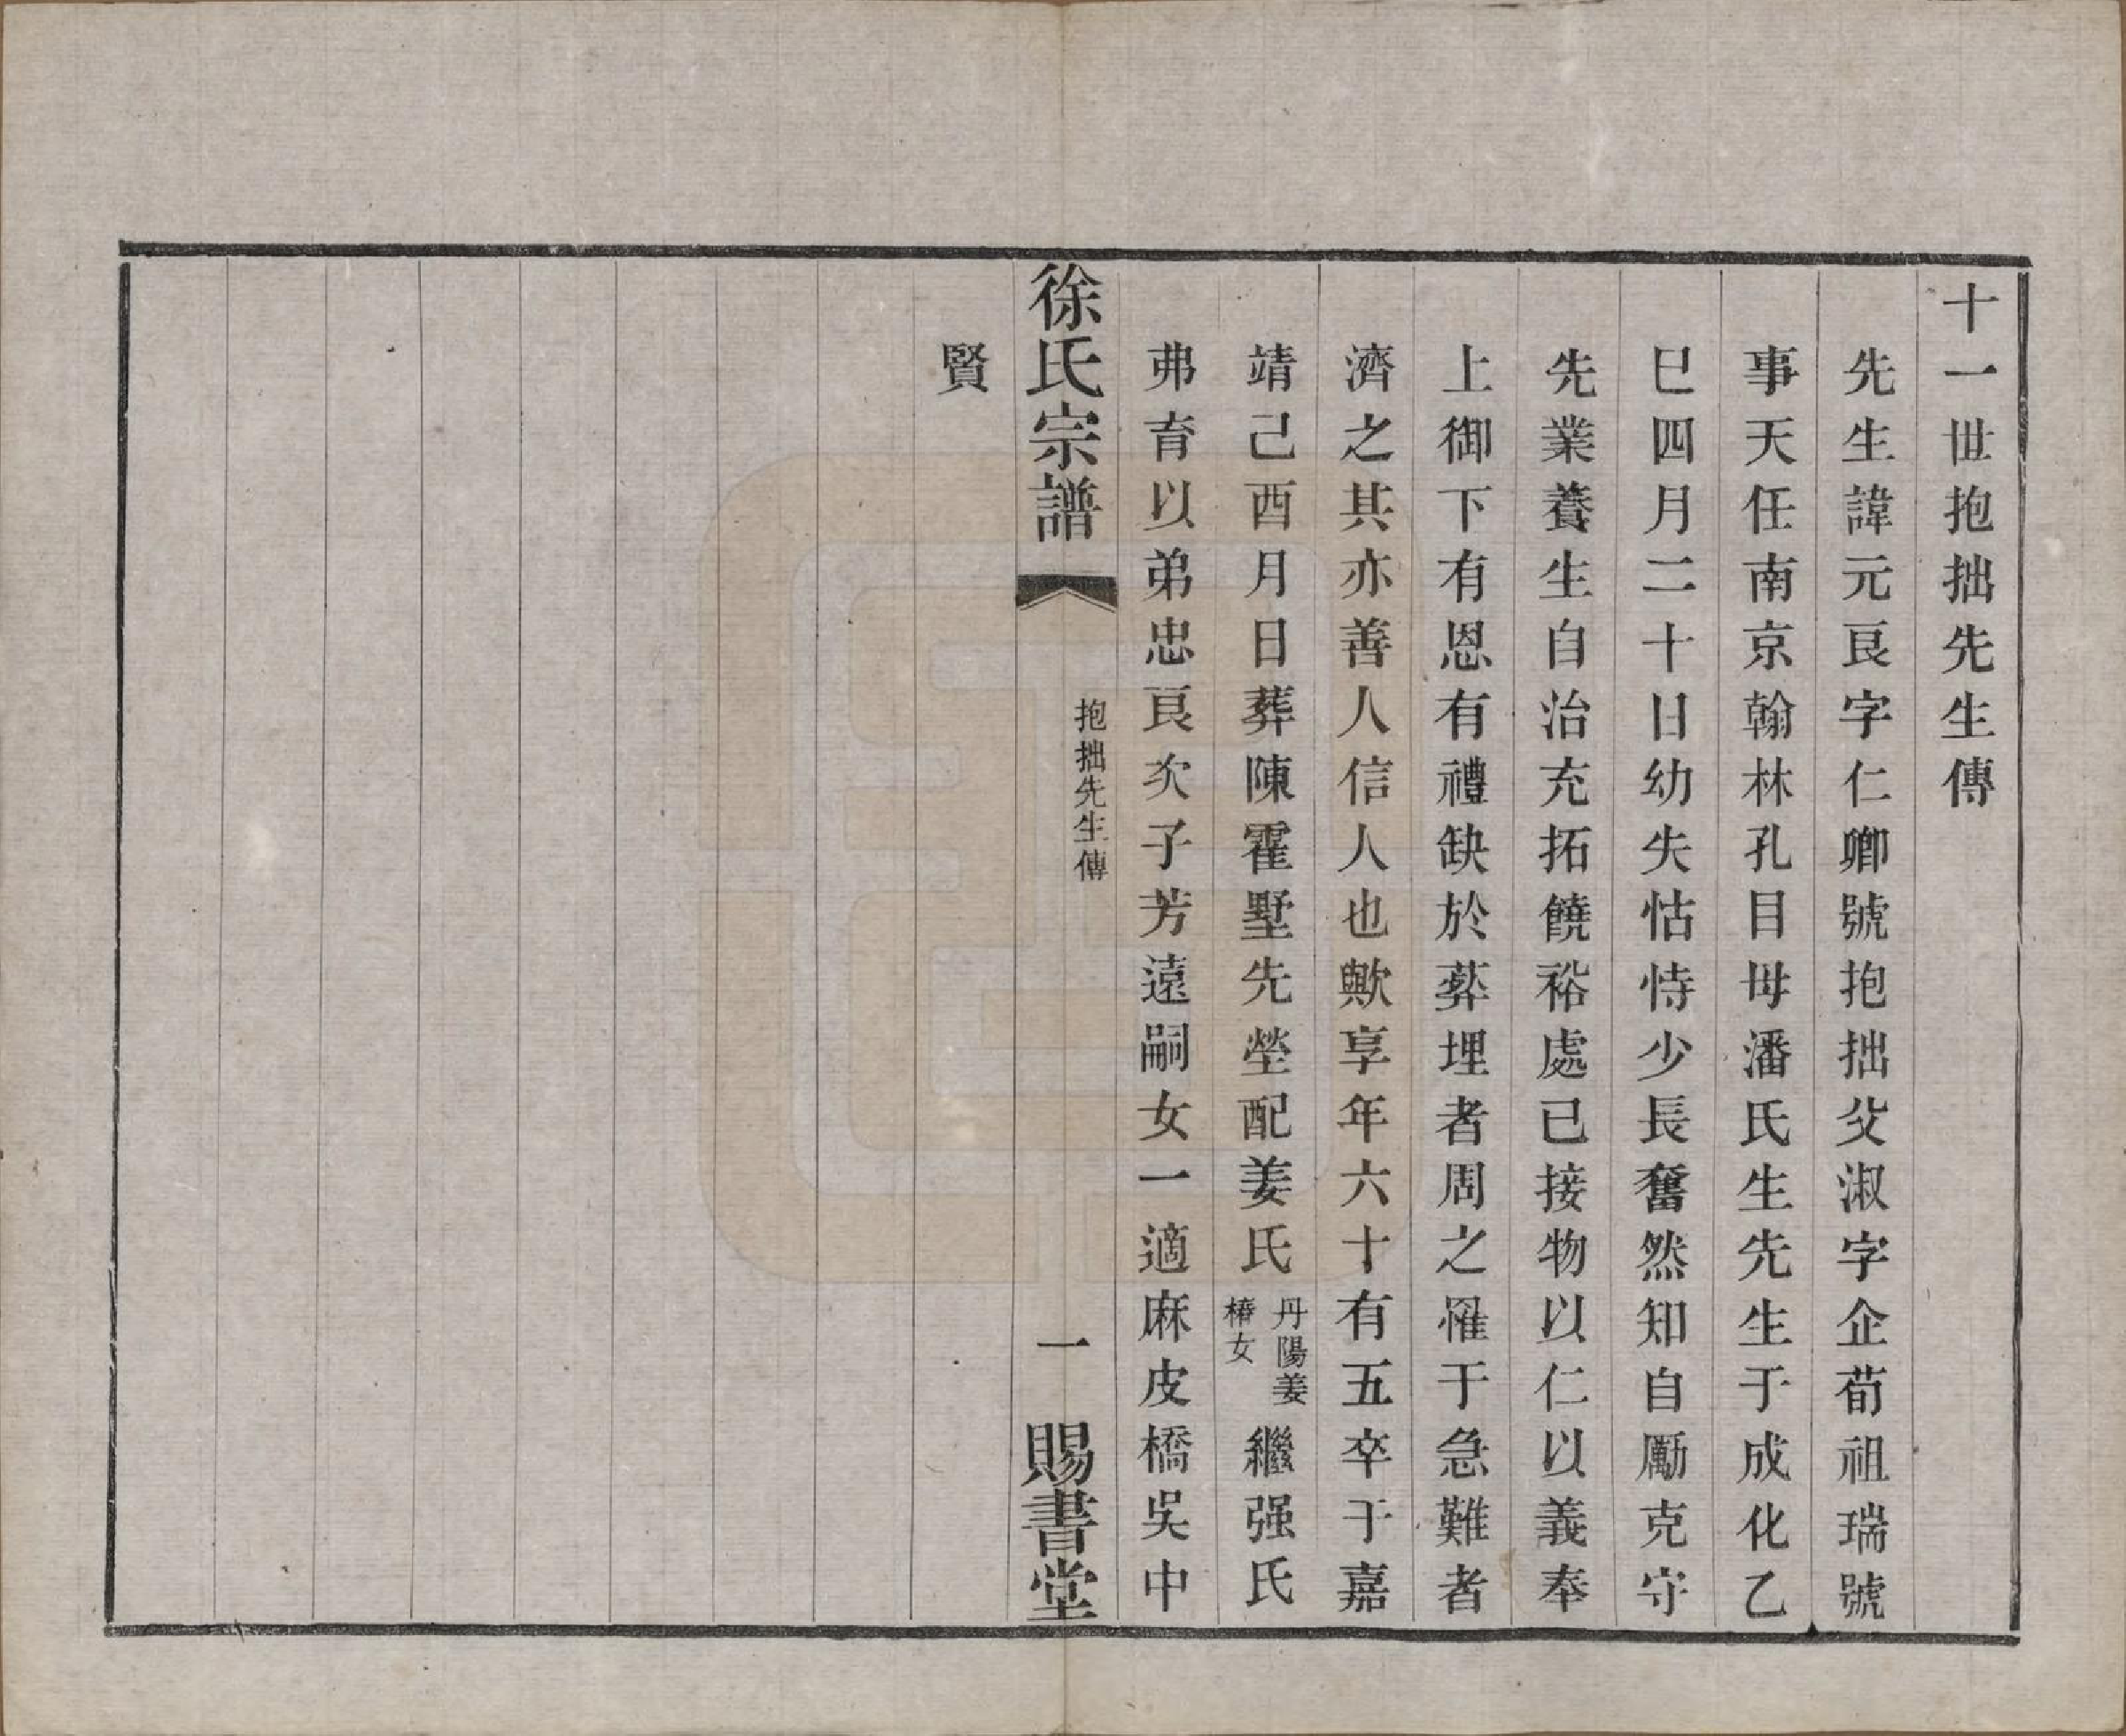 十一世抱拙先生傳
先生諱元良字仁卿號抱拙父淑字企荀祖瑞號
事天任南京翰林孔目母潘氏生先生于成化乙
巳四月二十日幼失怙恃少長奮然知自勵克守
先業養生自治充拓饒裕處已接物以仁以義奉
上御下有恩有禮缺於葬埋者周之罹于急難者
濟之其亦善人信人也歟享年六十有五卒于嘉
靖己酉月日葬陳霍墅先塋配姜氏丹陽姜椿女繼强氏
弗育以弟忠良次子芳遠嗣女一適麻皮橋吳中
徐氏宗譜
抱拙先生傳
一
賜書堂
賢